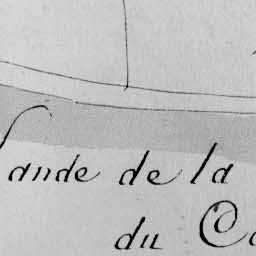 Lande de la
du